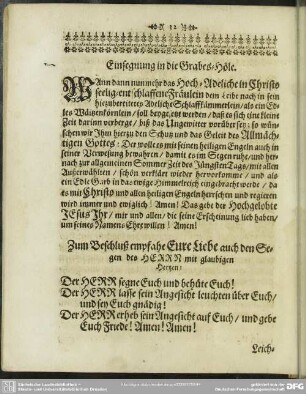 52
Einsegnung in die Grabes-Höle.
WAnn dann nunmehr das Hoch-Adeliche in Christo
seelig entschlaffene Fräulein dem Leibe nach in sein
hiezu bereitetes Adeliche Schlaffkämmerlein/ als ein Ed-
les Wäitzenkörnlein/ soll begraben werden/ daß es sich eine kleine
Zeit darinn verberge/ biß das Ungewitter vorüber sey: so wün-
schen wir Ihm hierzu den Schutz und das Geleit des Allmäch-
tigen Gottes: Der wolle es mit seinen heiligen Engeln auch in
seiner Verwesung bewahren/ damit es im Segen ruhe/ und her-
nach zur allgemeinen Sommer Zeit des Jüngsten Tags/ mit allen
Außerwählten/ schön verklärt wieder hervorkomme/ und als
ein Edle Garb in das ewige Himmelreich eingebracht werde/ da
es mit Christo und allen heiligen Engeln herrschen und regieren
wird immer und ewiglich! Amen! Das gebe der Hochgelobte
JEsus Jhr/ mir und allen/ die seine Erscheinung lieb haben/
um seines Namens Ehre willen! Amen!
Zum Beschluß empfahe Eure Liebe auch den Se-
gen des HERRN mit glaubigen
Hertzen:
Der HERR segne Euch und behüte Euch!
Der HERR lasse sein Angesicht leuchten über Euch/
und sey Euch gnädig!
Der HERR erheb sein Angesicht auf Euch/ und gebe
Euch Friede! Amen! Amen!
Leich-